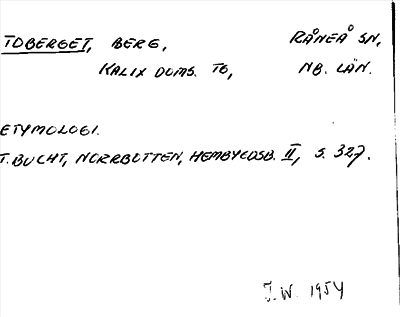 TOBERGET, BERG, RÅNEÅ SN,
KALIX DOMS. TG, NB. LÄN.
ETYMOLOGI.
T. BUCHT, NORRBOTTEN, HEMBYGDSB. II, S. 327.
J.W. 1954